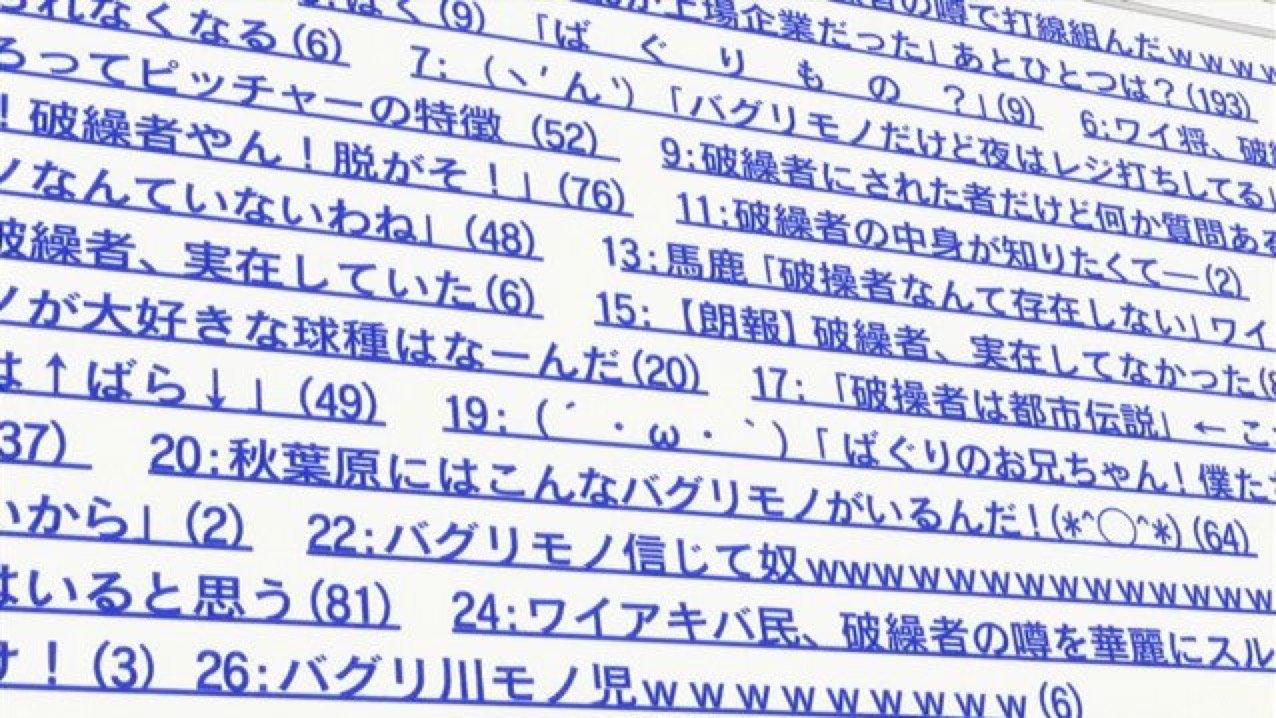 られなくなる(6)
(9) 「ば ぐ り も の ？」(9)
上場企業だった」あとひとつは？(193)
者の噂で打線組んだｗｗｗｗ
ろってピッチャーの特徴 (52)
7: (ヽ´ん`) 「バグリモノだけど夜はレジ打ちしてる」
6:ワイ将、破繰
！破繰者やん！脱がそ！」(76)
9:破繰者にされた者だけど何か質問ある
ノなんていないわね」(48)
11:破繰者の中身が知りたくてー(2)
破繰者、実在していた(6)
13:馬鹿「破操者なんて存在しない」ワイ
ノが大好きな球種はなーんだ(20)
15:【朗報】破繰者、実在してなかった(8
は↑ばら↓」(49)
17:「破操者は都市伝説」←こ
37)
19:(´・ω・｀)「ばぐりのお兄ちゃん！僕た
20:秋葉原にはこんなバグリモノがいるんだ！(*^◯^*)(64)
いから」(2)
22:バグリモノ信じて奴wwwｗｗｗｗｗｗｗｗｗｗ
はいると思う(81)
24:ワイアキバ民、破繰者の噂を華麗にスル
！(3)
26:バグリ川モノ児ｗｗｗｗｗｗｗｗｗ(6)